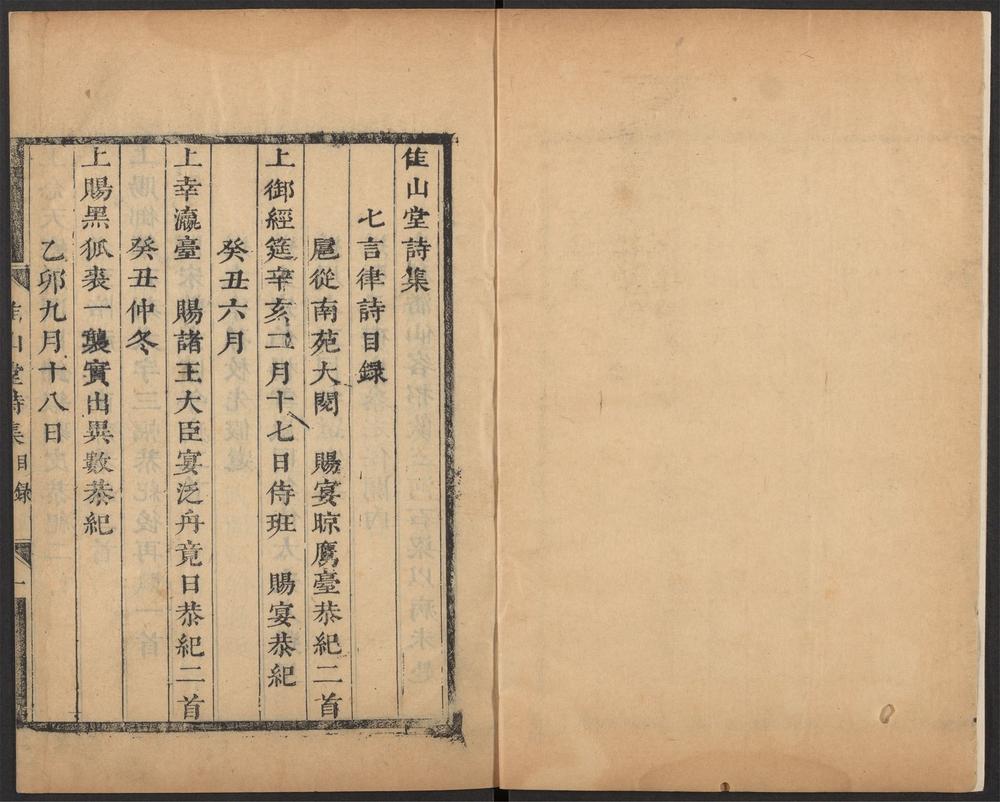 隹山堂詩集
七言律詩目録
扈從南苑大閱　賜宴晾鷹臺恭紀二首
上御經筵辛亥二月十七日侍班　賜宴恭紀
癸丑六月
上幸瀛臺　賜諸王大臣宴泛舟竟日恭紀二首
癸丑仲冬
上賜黑狐裘一襲實出異數恭紀
乙卯九月十八日
隹山堂詩集　目録　一